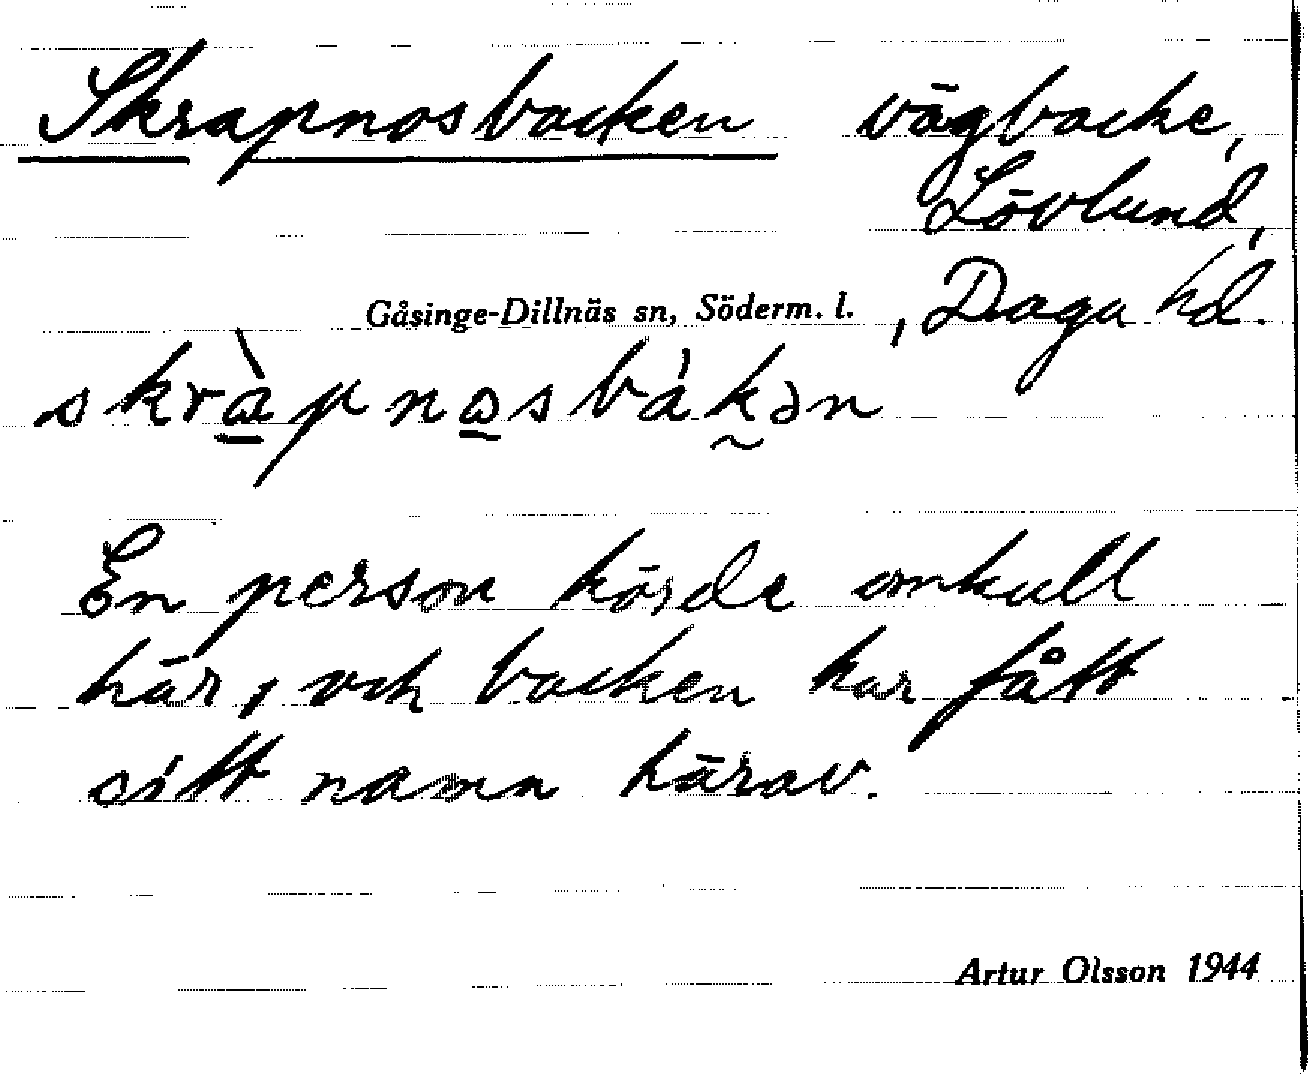 Skrapnosbacken vägbacke,
Lövlund,
Gåsinge-Dillnäs sn, Söderm. l. , Daga hd.
skràpnosbákən
En person körde omkull
här, och backen har fått
sitt namn härav.
Artur Olsson 1944